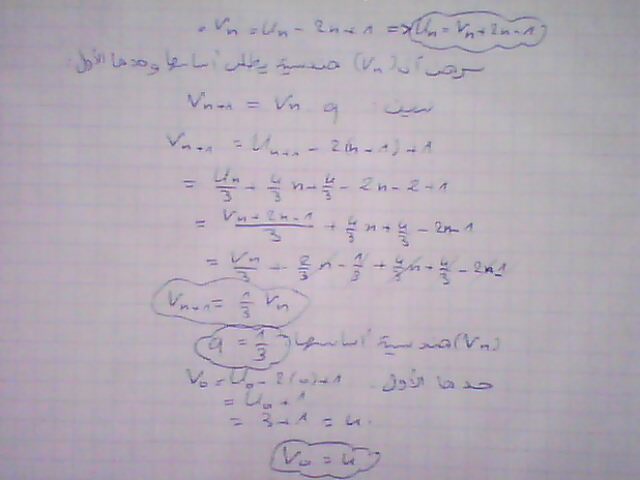 Vn = Un - 2n + 1 => Un = Vn + 2n - 1
أن (Vn) هندسية يطلب أساسها وحدها الأول
Vn+1 = Vn . q
Vn+1 = Un+1 - 2(n+1) + 1
= Un/3 + 4/3 n + 4/3 - 2n - 2 + 1
= (Vn + 2n - 1)/3 + 4/3 n + 4/3 - 2n - 1
= Vn/3 + 2/3 n - 1/3 + 4/3 n + 4/3 - 2n - 1
Vn+1 = 1/3 Vn
(Vn) هندسية أساسها q = 1/3
حدها الأول V0 = U0 - 2(0) + 1
= U0 + 1
= 3 + 1 = 4.
V0 = 4